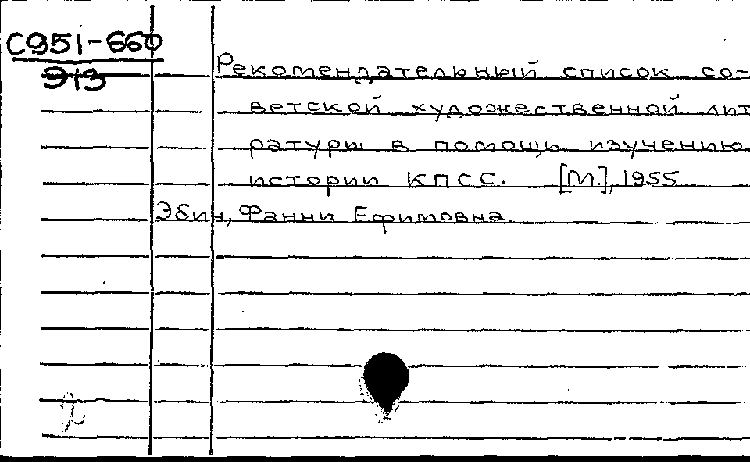 С951-660
913
Рекомендательный список со-
ветской художественной лит
ратуры в помощь изучению
истории КПСС. [М.], 1955
Эбин, Фанни Ефимовна.
2